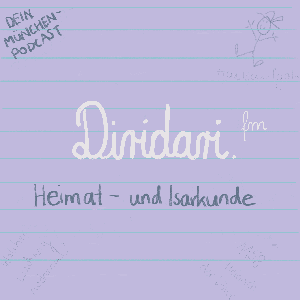 DEIN
MÜNCHEN-
PODCAST
Diridari.fm
Heimat- und Isarkunde